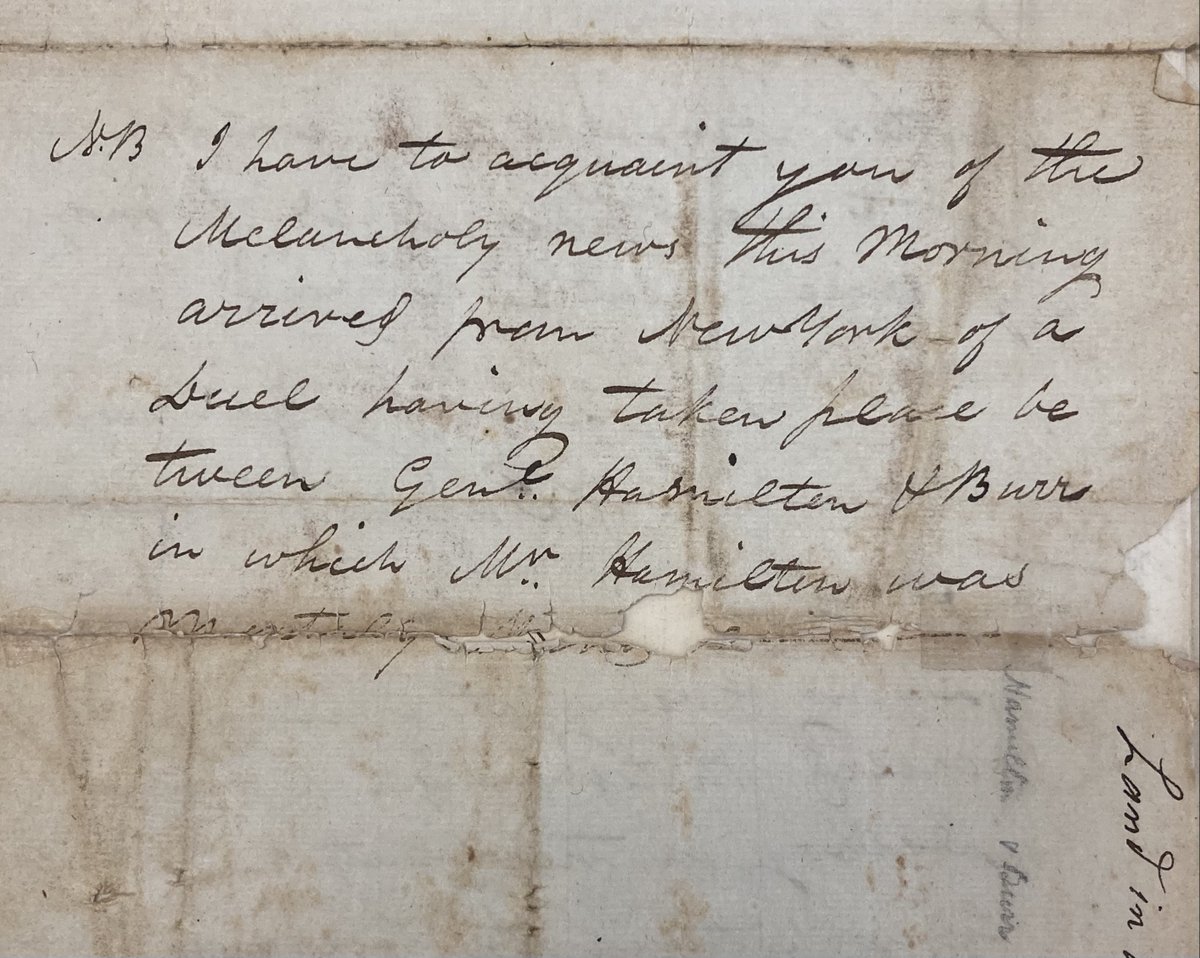 N.B I have to acquaint you of the
Melancholy news this Morning
arrived from New York of a
Duel having taken place be
tween Genl. Hamilton & Burr
in which Mr. Hamilton was
Mortally
Hamilton & Burr
Land in